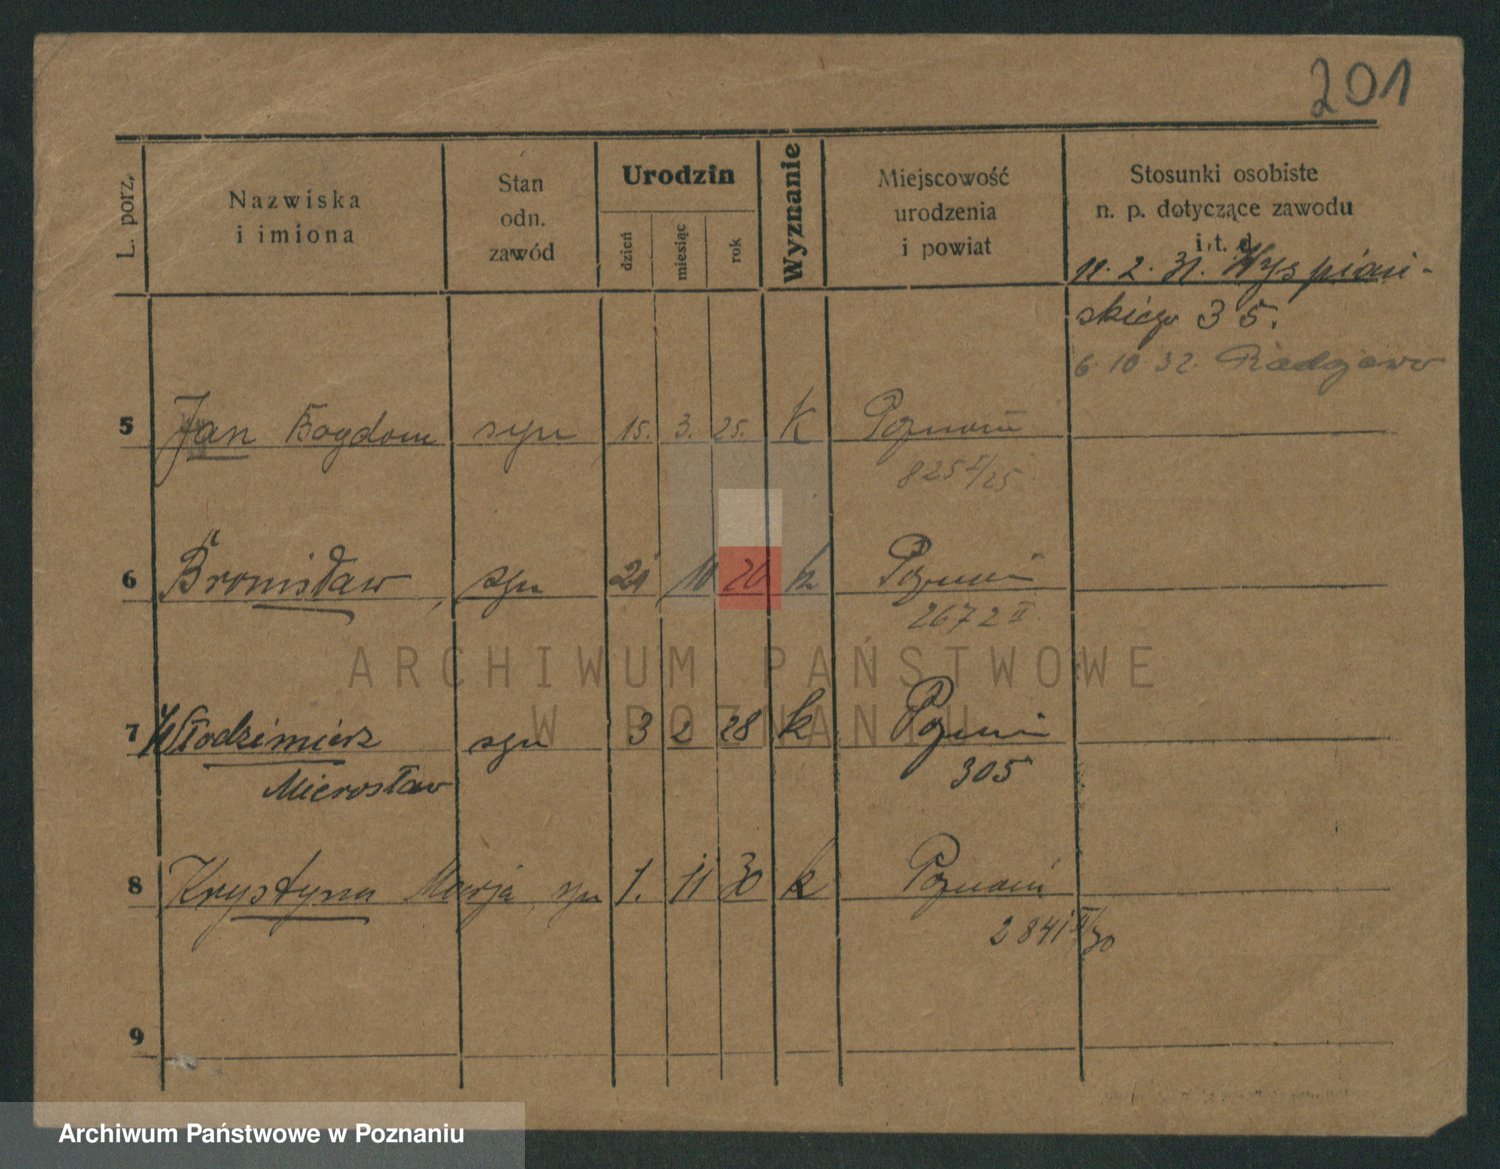 201
L. porz.
Nazwiska
i imiona
Stan
odn.
zawód
Urodzin
dzień
miesiąc
rok
Wyznanie
Miejscowość
urodzenia
i powiat
Stosunki osobiste
n. p. dotyczące zawodu
i t. d.
11. 2. 31. Wyspiań-
skiego 35.
6. 10 32. Radojewo
5 Jan Bogdan syn 15. 3. 25. K Poznań
825 I/25
6 Bronisław, syn 21 10 26 k Poznań
2672 II.
7 Włodzimierz syn 3 2 28 k Poznań
Mirosław 305
8 Krystyna Marja, 1. 11 30 k Poznań
2841 II/30
9
ARCHIWUM PAŃSTWOWE
W POZNANIU
Archiwum Państwowe w Poznaniu